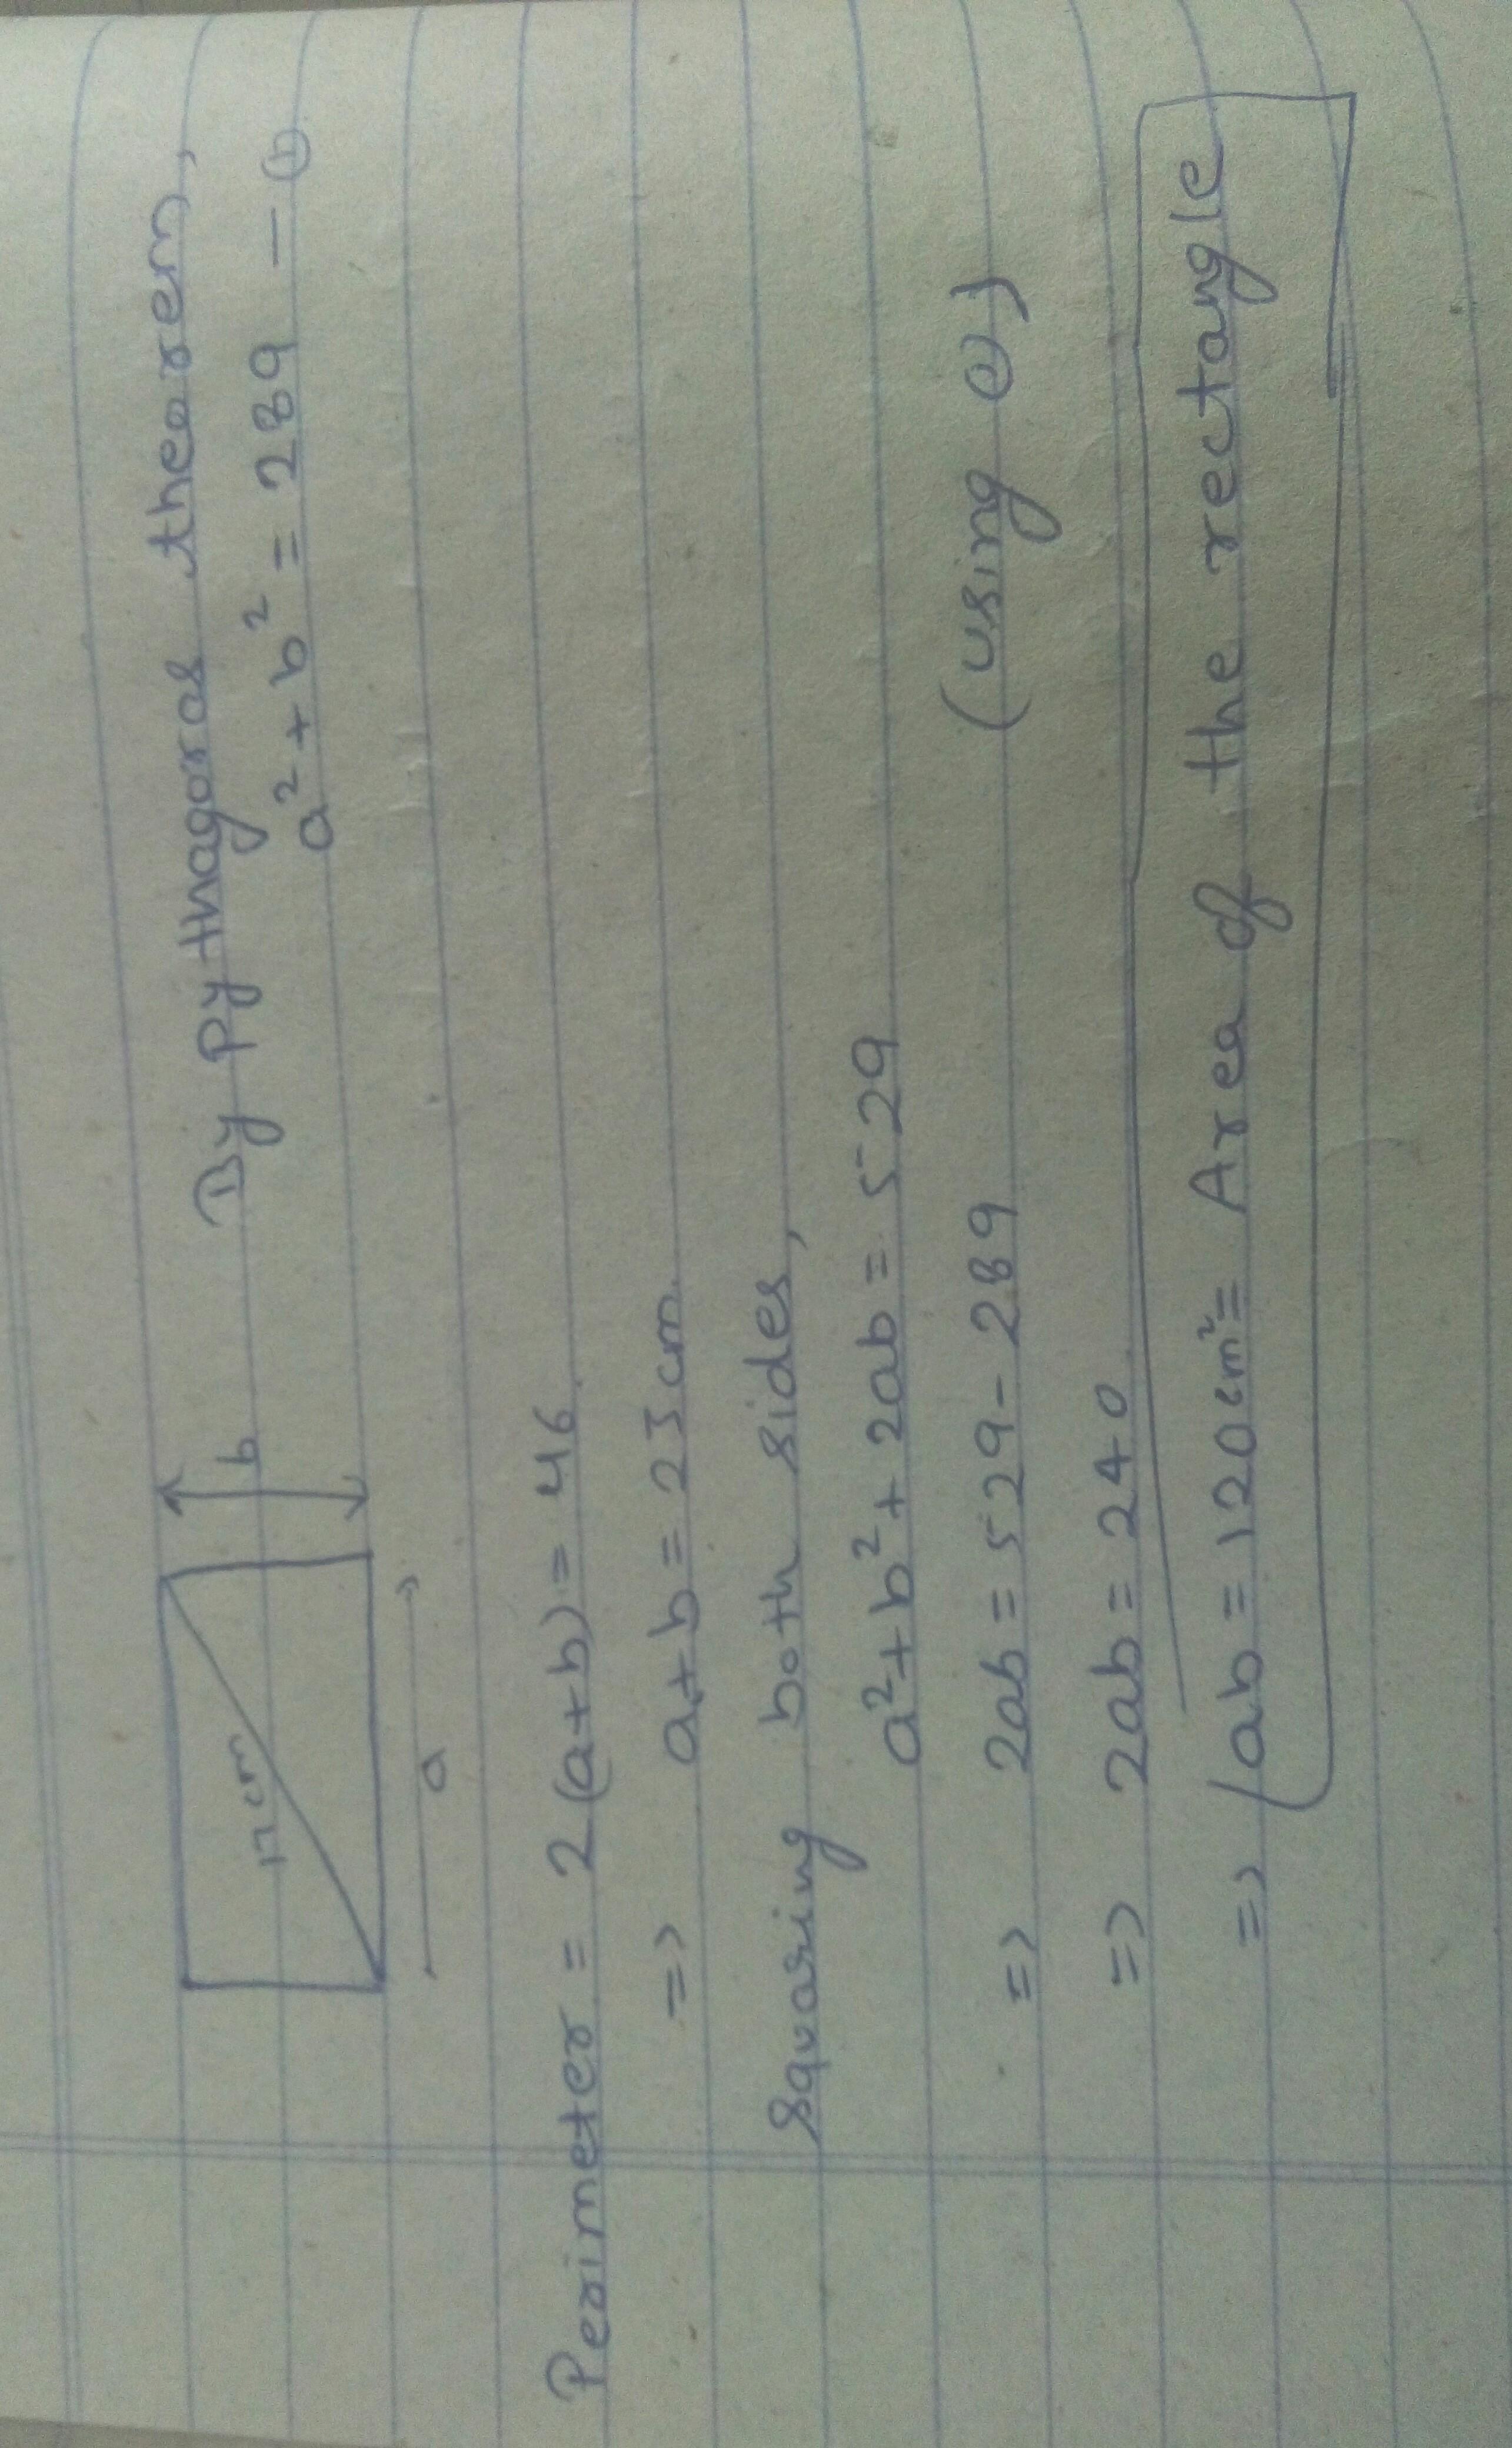 17cm
b
a
By Pythagoras theorem,
a² + b² = 289 — ①
Perimeter = 2(a+b) = 46
=> a+b = 23cm.
Squaring both sides,
a²+b²+2ab = 529
=> 2ab = 529-289 (using ①)
=> 2ab = 240
=> ab = 120cm² = Area of the rectangle